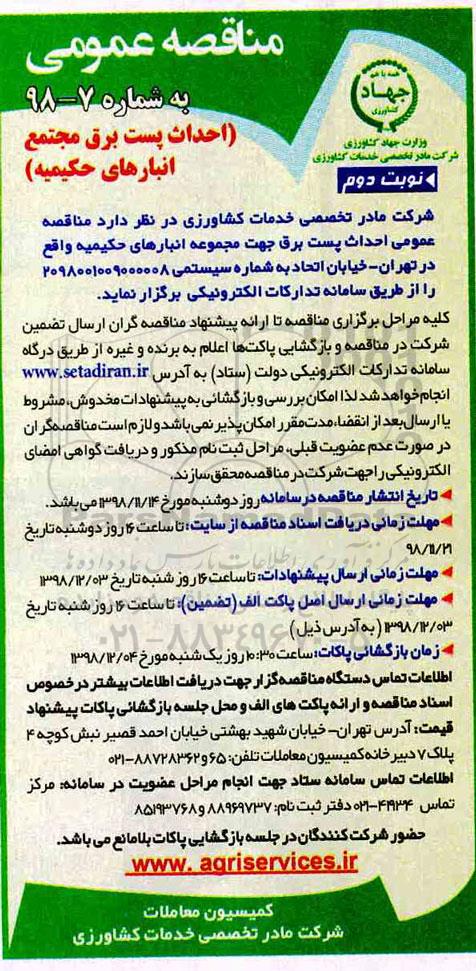 مناقصه عمومی
به شماره ۷-۹۸
(احداث پست برق مجتمع
انبارهای حکیمیه)
همه با هم
جهاد
کشاورزی
وزارت جهاد کشاورزی
شرکت مادر تخصصی خدمات کشاورزی
نوبت دوم
شرکت مادر تخصصی خدمات کشاورزی در نظر دارد مناقصه
عمومی احداث پست برق جهت مجموعه انبارهای حکیمیه واقع
در تهران-خیابان اتحاد به شماره سیستمی ۲۰۹۸۰۰۱۰۰۹۰۰۰۰۰۸
را از طریق سامانه تدارکات الکترونیکی برگزار نماید.
کلیه مراحل برگزاری مناقصه تا ارائه پیشنهاد مناقصه گران ارسال تضمین
شرکت در مناقصه و بازگشایی پاکت‌ها اعلام به برنده و غیره از طریق درگاه
سامانه تدارکات الکترونیکی دولت (ستاد) به آدرس www.setadiran.ir
انجام خواهد شد لذا امکان بررسی و بازگشائی به پیشنهادات مخدوش، مشروط
یا ارسال بعد از انقضاء مدت مقرر امکان پذیر نمی باشد و لازم است مناقصه گران
در صورت عدم عضویت قبلی، مراحل ثبت نام مذکور و دریافت گواهی امضای
الکترونیکی را جهت شرکت در مناقصه محقق سازند.
تاریخ انتشار مناقصه در سامانه روز دوشنبه مورخ ۱۳۹۸/۱۱/۱۴ می باشد.
مهلت زمانی دریافت اسناد مناقصه از سایت: تا ساعت ۱۶ روز دوشنبه تاریخ
۹۸/۱۱/۲۱
مهلت زمانی ارسال پیشنهادات: تا ساعت ۱۶ روز شنبه تاریخ ۱۳۹۸/۱۲/۰۳
مهلت زمانی ارسال اصل پاکت الف (تضمین): تا ساعت ۱۶ روز شنبه تاریخ
۱۳۹۸/۱۲/۰۳ (به آدرس ذیل)
زمان بازگشائی پاکات: ساعت ۱۰:۳۰ روز یک شنبه مورخ ۱۳۹۸/۱۲/۰۴
اطلاعات تماس دستگاه مناقصه گزار جهت دریافت اطلاعات بیشتر در خصوص
اسناد مناقصه و ارائه پاکت های الف و محل جلسه بازگشائی پاکات پیشنهاد
قیمت: آدرس تهران- خیابان شهید بهشتی خیابان احمد قصیر نبش کوچه ۴
پلاک ۷ دبیرخانه کمیسیون معاملات تلفن: ۶۵ و ۸۸۷۲۸۳۶۲-۰۲۱
اطلاعات تماس سامانه ستاد جهت انجام مراحل عضویت در سامانه: مرکز
تماس ۴۱۹۳۴-۰۲۱ دفتر ثبت نام: ۸۸۹۶۹۷۳۷ و ۸۵۱۹۳۷۶۸
حضور شرکت کنندگان در جلسه بازگشایی پاکات بلامانع می باشد.
www. agriservices.ir
کمیسیون معاملات
شرکت مادر تخصصی خدمات کشاورزی